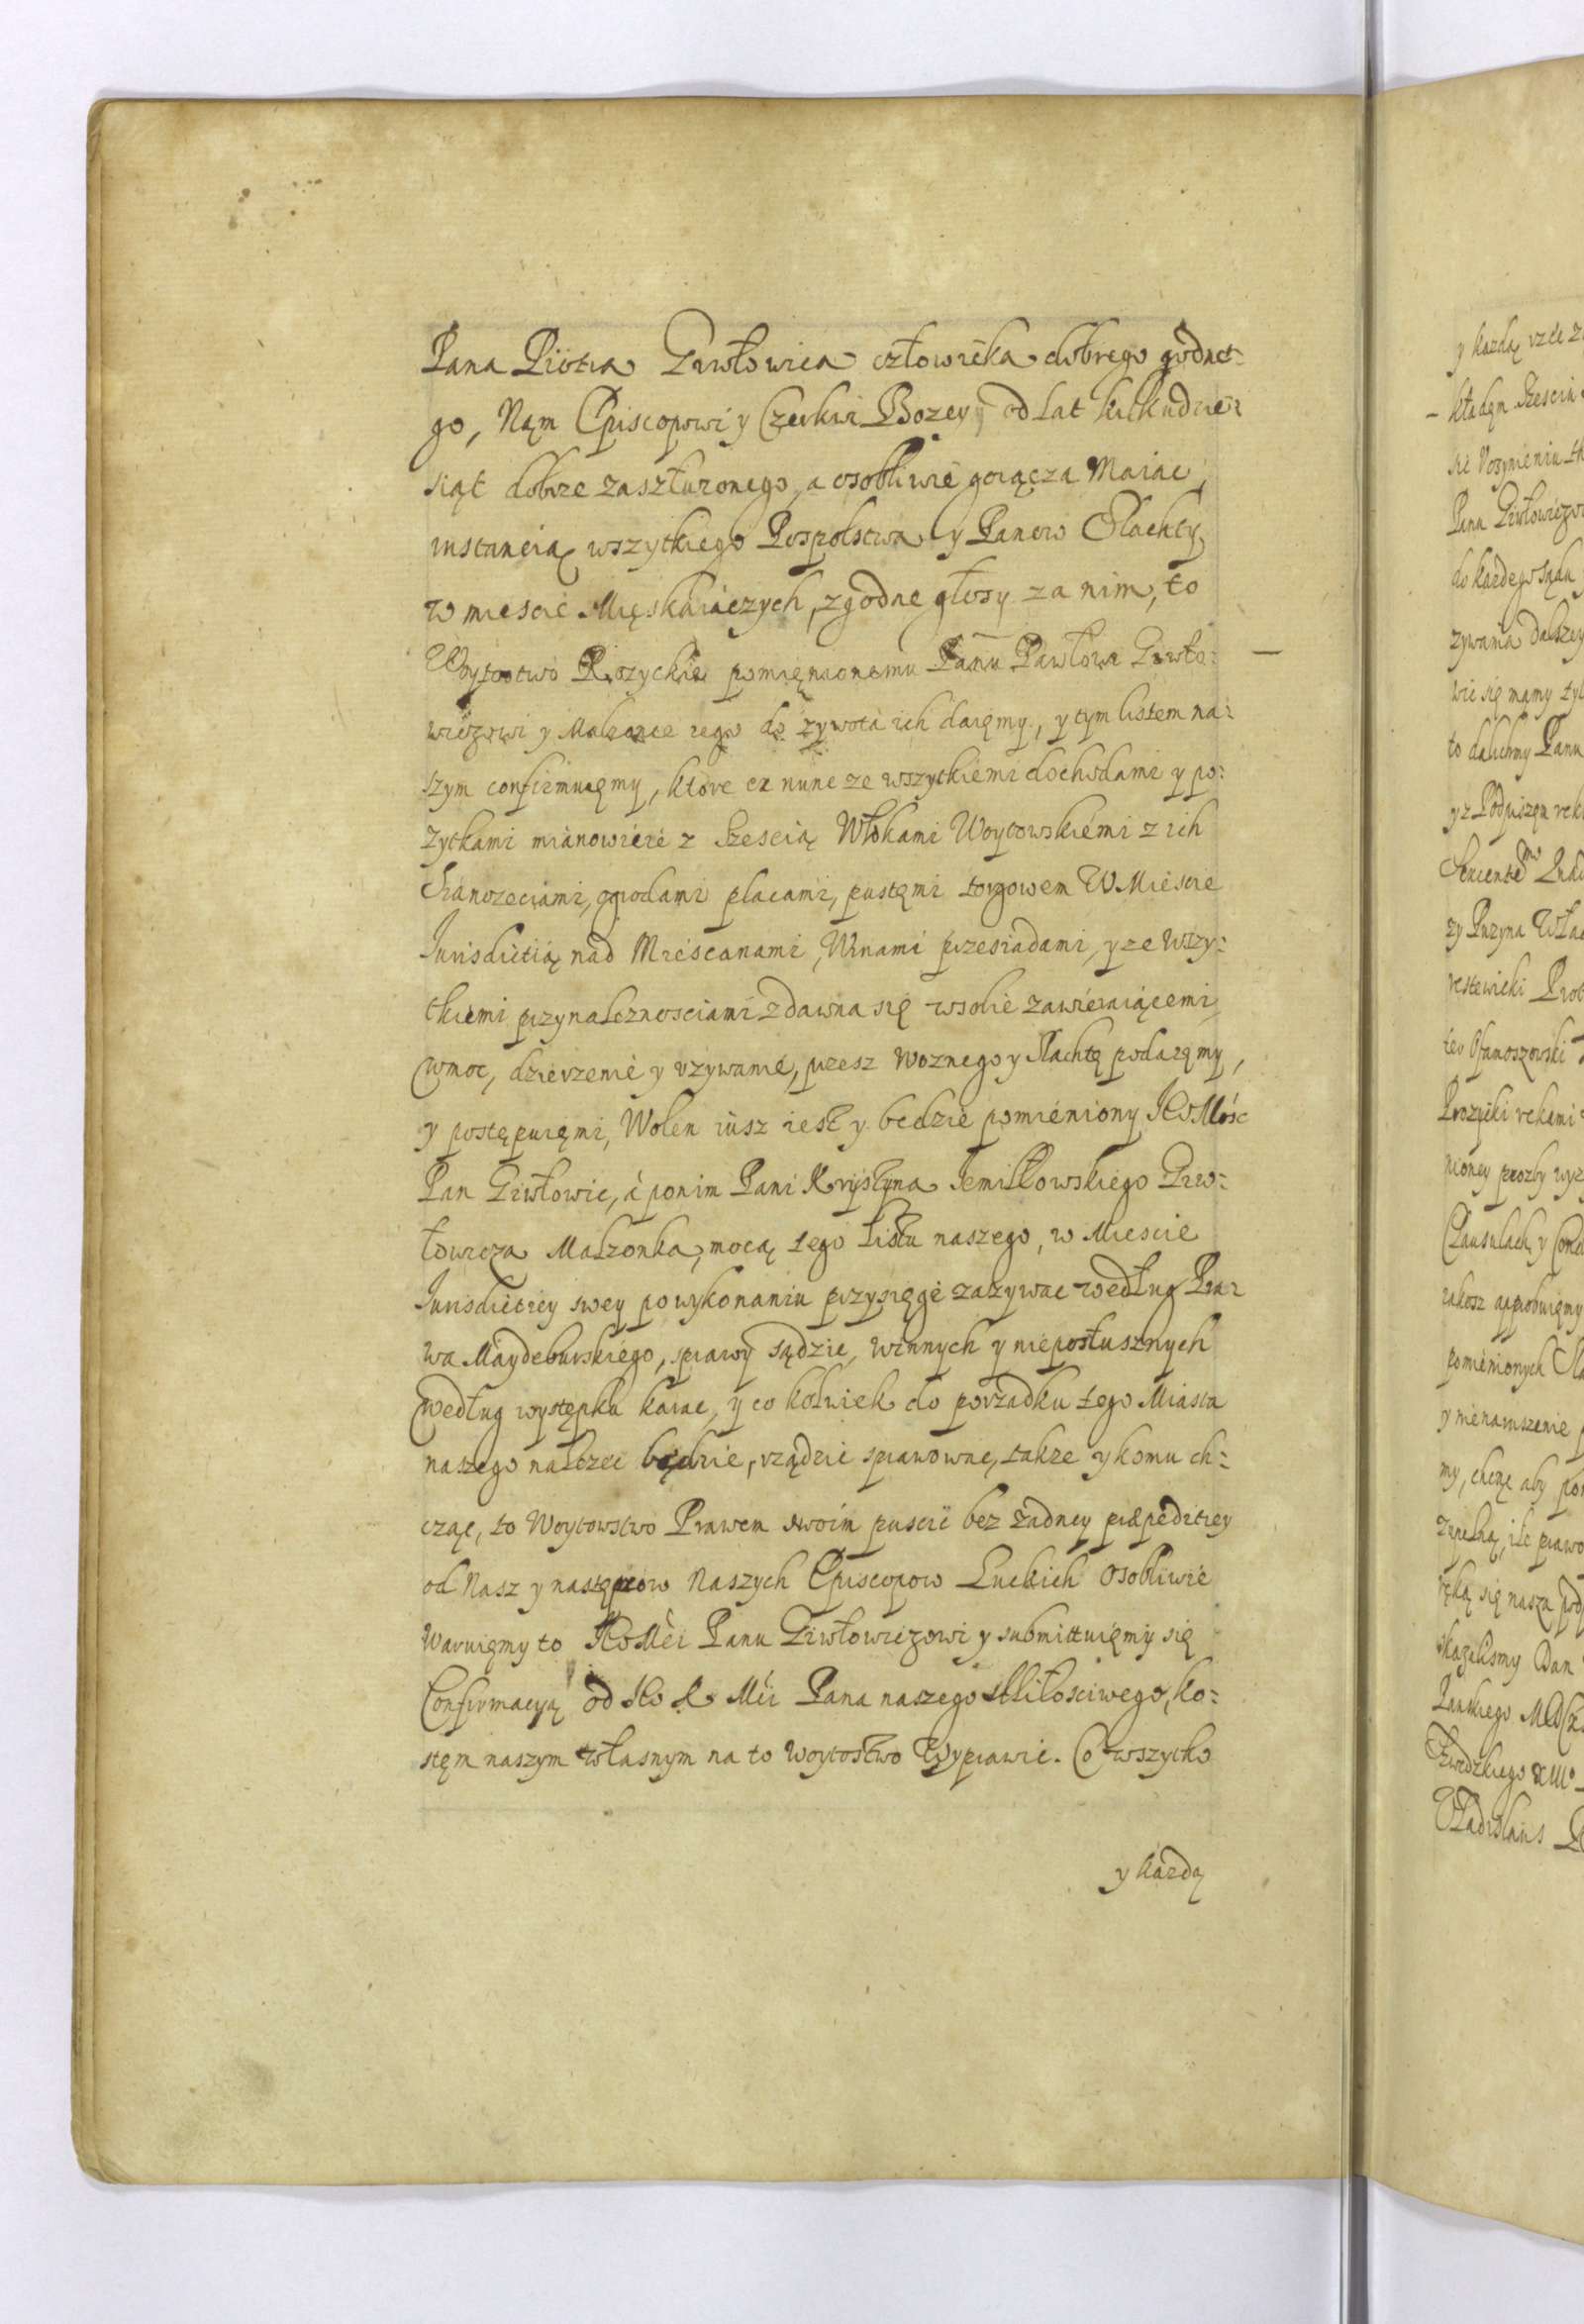 Pana Piotra Ziwłowica człowieka dobrego godne-
go, Nąm Episcopowi y Czerkwi Bozey y od lat kilkudzie-
siąt dobrze zaszłuzonego, a osobliwie gorącza Maiac
instancią wszytkiego Pospolstwa y Panow Slachty,
w miescie Mięskaiączych, zgodne głosy za nim, to
Woytostwo Rozyckie pomięnionemu Panu Pawłowi Ziwło-
wiczowi y Malzonce iego do zywota ich daięmy, y tym listem na-
szym confirmuięmy, ktore ex nunc ze wszytkiemi dochodami y po-
zytkami mianowicie z Szescią Włokami Woytowskiemi z ich
Sianozeciami, ogrodami placami, pustęmi torgowem W Miescie
Iurisdictią nad Miescanami, Winami przesiadami, y ze wszy-
tkiemi przynaleznosciami zdawna się wsobie zawieraiącemi
wmoc, dzierzenie y vzywanie, przesz Woznego y Slachtę podaięmy,
y postępuięmi, Wolen iusz iest y bedzie pomieniony Ieo Mośc
Pan Ziwłowic, á ponim Pani Krystyna Iemiłkowskiego Ziw-
łowicza Malzonka, mocą tego listu naszego, w Miescie
Iurisdictiey swey powykonaniu przysięgi zazywac według Pra-
wa Maydeburskiego, sprawy sądzic, winnych y nieposłusznych
według występku karac, y co kolwiek do porzadku tego Miasta
naszego nalezec będzie, rządzic sprawowac, takze y komu ch-
cząc, to Woytowstwo Prawem swoim puscic bez zadney præpeditiey
od Nasz y następcow Naszych Episcopow Luckich osobliwie
Waruięmy to Ieo Mći Panu Ziwłowiczowi y submittuięmy się
Confirmacyą od Ieo K. Mći Pana naszego Miłosciwego, ko-
stęm naszym własnym na to Woytostwo Wyprawic. Co wszytko
y kazdą
y kazdą
Panu
do kazdego sądu
zywania dalszey
wie się mąmy
to dalichmy Panu
zy Puzyna
rekami
nioney prozby
Clausulach y
approbuięmy
pomienionych
y nienaruszenie
my, chcąc aby
rękę się naszą
Pana